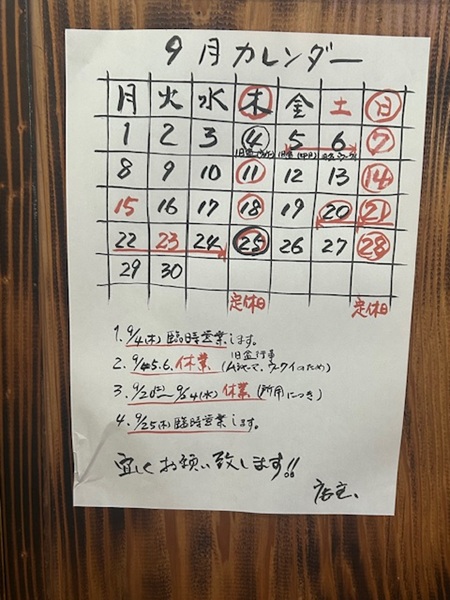 9月カレンダー
月 火 水 木 金 土 日
1 2 3 4 5 6 7
8 9 10 11 12 13 14
15 16 17 18 19 20 21
22 23 24 25 26 27 28
29 30
定休日 定休日
1. 9/4(木)臨時営業します。
旧盆行事
2. 9/5.6. 休業
3. 9/20(土)〜9/24(水) 休業 (所用につき)
4. 9/25(木)臨時営業します。
宜しくお願い致します!!
店主、